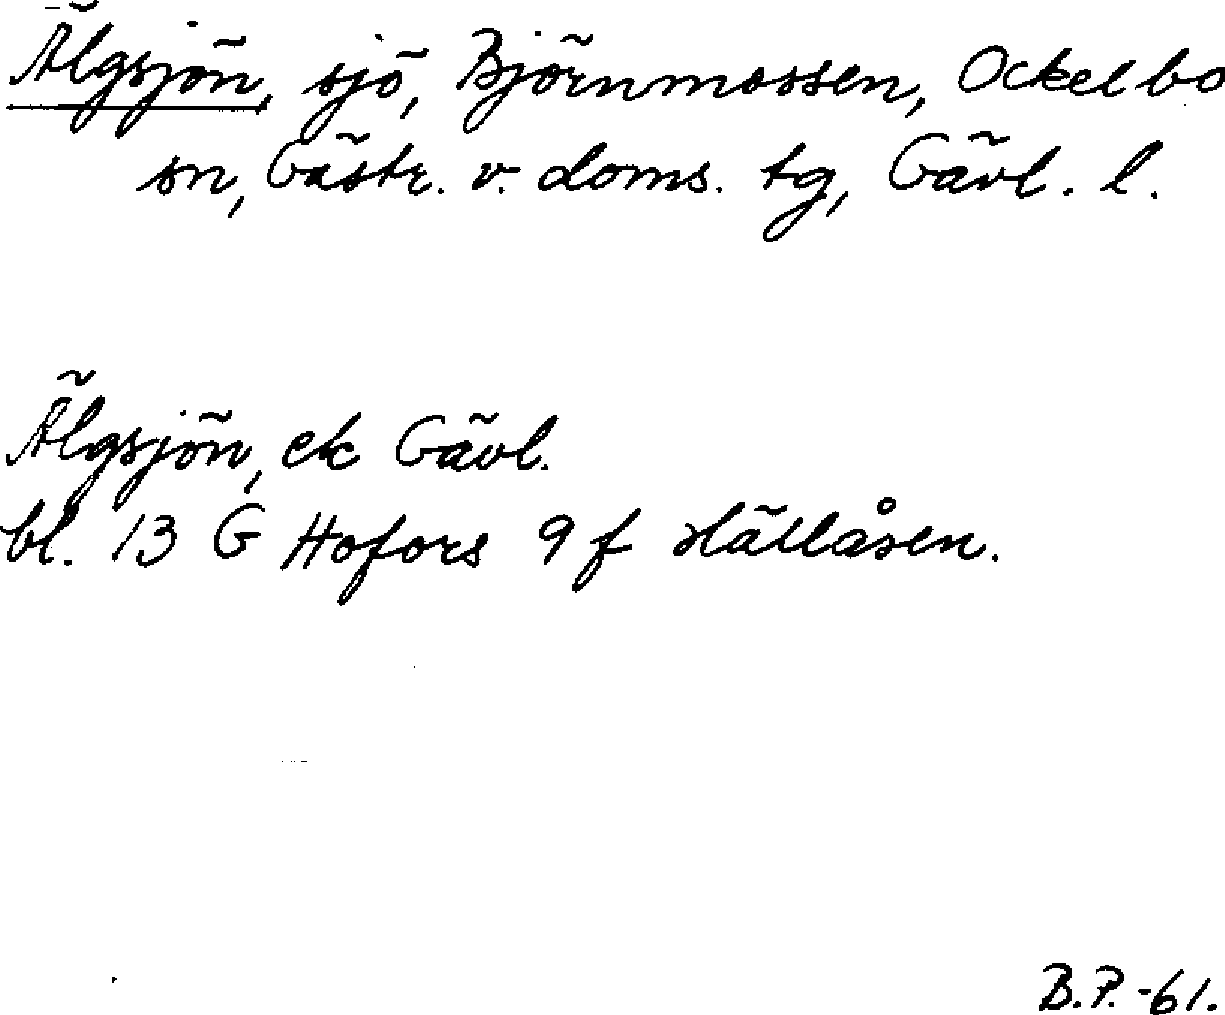 Älgsjön, sjö, Björnmossen, Ockelbo
sn, Gästr. v. doms. tg, Gävl. l.
Älgsjön, ek Gävl.
bl. 13 G Hofors 9 f Hällåsen.
B.P. -61.